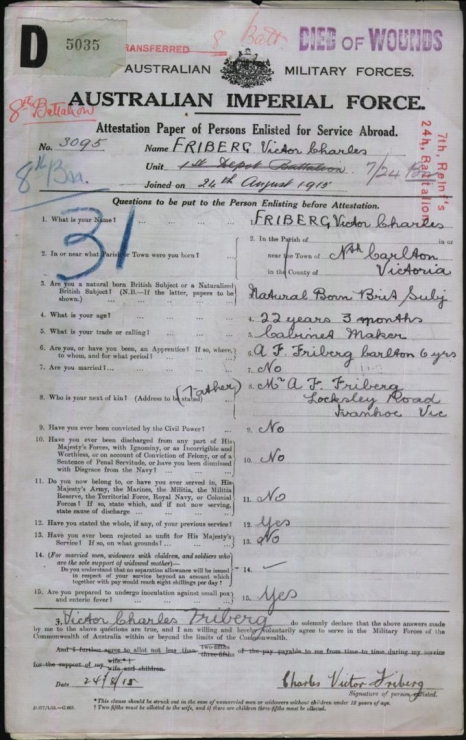 D 5035
TRANSFERRED 8 Batt
DIED OF WOUNDS
AUSTRALIAN MILITARY FORCES.
AUSTRALIAN IMPERIAL FORCE.
8th Battalion
Attestation Paper of Persons Enlisted for Service Abroad.
7th, Reint's
24h, Battalion
No. 3095 Name FRIBERG Victor Charles
Unit 1st Depot Battalion 7/24 Bn
8th Bn.
Joined on 24th August 1915
Questions to be put to the Person Enlisting before Attestation.
31
1. What is your Name? ... ... ... FRIBERG, Victor Charles
2. In or near what Parish or Town were you born? ... 2. In the Parish of in or
near the Town of Nth Carlton
in the County of Victoria
3. Are you a natural born British Subject or a Naturalised
British Subject? (N.B.—If the latter, papers to be
shown.) ... ... ... Natural Born Brit, Subj
4. What is your age? ... ... ... 4. 22 years 3 months
5. What is your trade or calling? ... ... 5. Cabinet Maker
6. Are you, or have you been, an Apprentice? If so, where,
to whom, and for what period? ... ... 6. A F. Friberg Carlton 6 yrs
7. Are you married? ... ... ... 7. No
8. Who is your next of kin? (Address to be stated) (Father) 8. Mr A F. Friberg
Locksley Road
Ivanhoe Vic
9. Have you ever been convicted by the Civil Power? ... 9. No
10. Have you ever been discharged from any part of His
Majesty's Forces, with Ignominy, or as Incorrigible and
Worthless, or on account of Conviction of Felony, or of a
Sentence of Penal Servitude, or have you been dismissed
with Disgrace from the Navy? ... ... 10. No
11. Do you now belong to, or have you ever served in, His
Majesty's Army, the Marines, the Militia, the Militia
Reserve, the Territorial Force, Royal Navy, or Colonial
Forces? If so, state which, and if not now serving,
state cause of discharge ... ... 11. No
12. Have you stated the whole, if any, of your previous service? 12. Yes
13. Have you ever been rejected as unfit for His Majesty's
Service? If so, on what grounds? ... ... 13. No
14. (For married men, widowers with children, and soldiers who
are the sole support of widowed mother)—
Do you understand that no separation allowance will be issued
in respect of your service beyond an amount which
together with pay would reach eight shillings per day? 14. —
15. Are you prepared to undergo inoculation against small pox
and enteric fever? ... ... ... 15. Yes
I, Victor Charles Friberg do solemnly declare that the above answers made
by me to the above questions are true, and I am willing and hereby voluntarily agree to serve in the Military Forces of the
Commonwealth of Australia within or beyond the limits of the Commonwealth.
And I further agree to allot not less than two-fifths three-fifths of the pay payable to me from time to time during my service
for the support of my wife.* wife and children.
Date 24/8/15 Charles Victor Friberg
Signature of person enlisted.
*This clause should be struck out in the case of unmarried men or widowers without children under 18 years of age.
† Two fifths must be allotted to the wife, and if there are children three-fifths must be allotted.